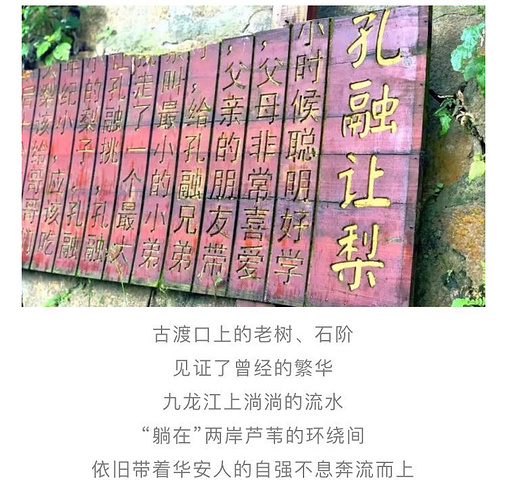 孔融让梨
小时候聪明好学
，父母非常喜爱
，父亲的朋友带
，给孔融兄弟
叫最小的小弟
走了一个最
孔融挑
的梨子，孔融
年纪小，
梨该给
古渡口上的老树、石阶
见证了曾经的繁华
九龙江上淌淌的流水
“躺在”两岸芦苇的环绕间
依旧带着华安人的自强不息奔流而上